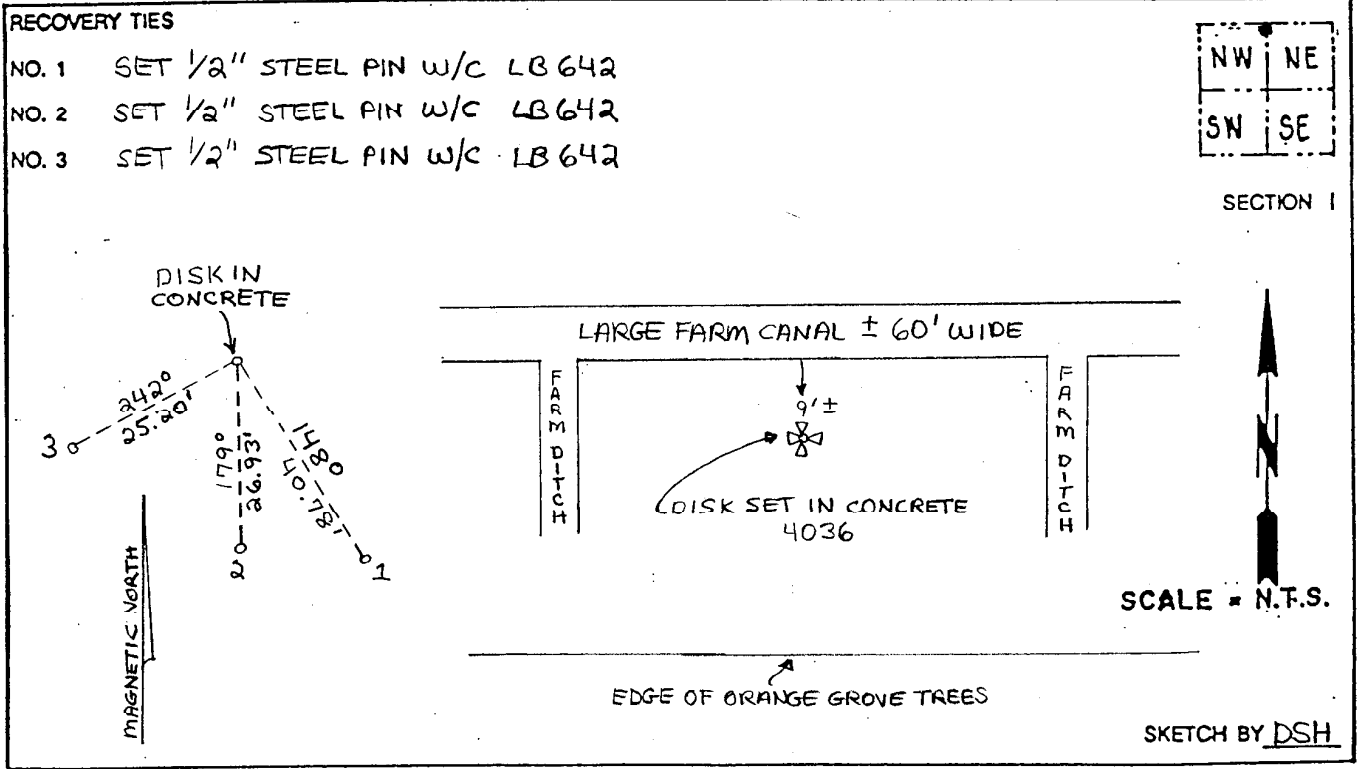 RECOVERY TIES
NO. 1 SET 1/2" STEEL PIN W/C LB 642
NO. 2 SET 1/2" STEEL PIN W/C LB 642
NO. 3 SET 1/2" STEEL PIN W/C LB 642
NW NE
SW SE
SECTION 1
DISK IN
CONCRETE
242°
25.20'
3
179°
26.93'
2
148°
40.78'
1
MAGNETIC NORTH
LARGE FARM CANAL ± 60' WIDE
FARM DITCH
9'±
FARM DITCH
DISK SET IN CONCRETE
4036
N
SCALE = N.T.S.
EDGE OF ORANGE GROVE TREES
SKETCH BY DSH